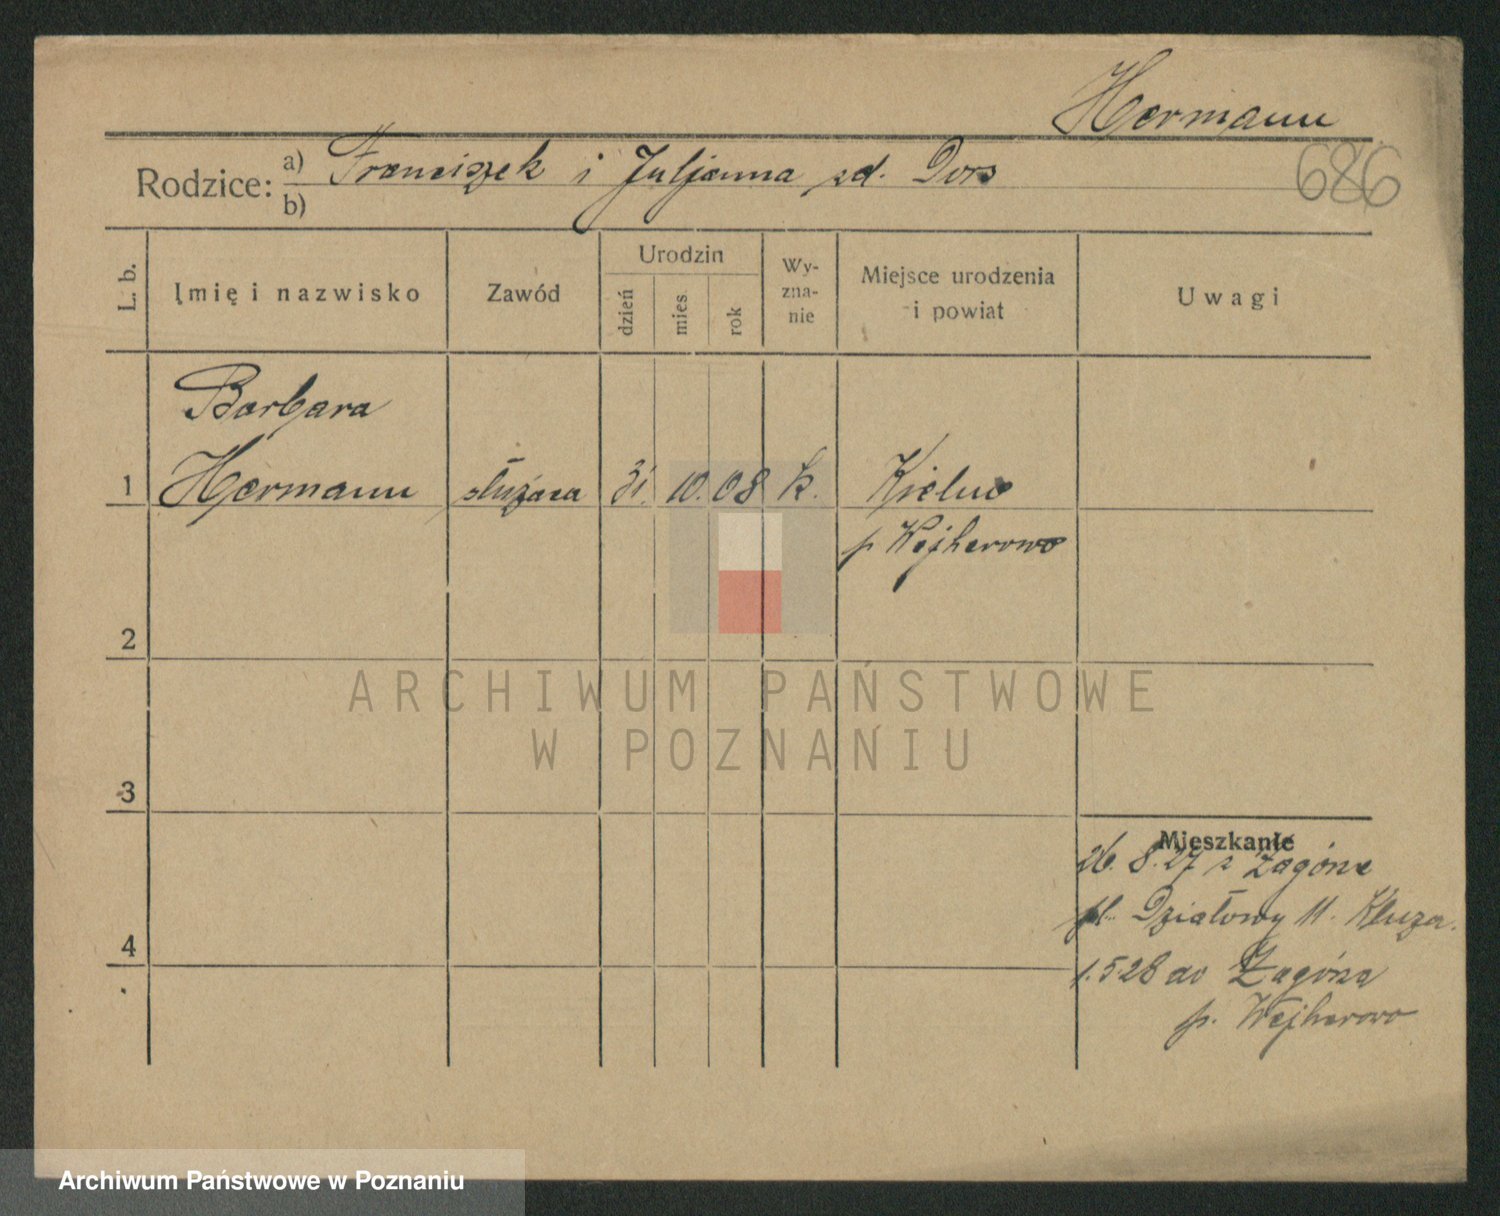 Hermann
686
Rodzice: a) Franciszek i Juljanna zd. Dors
b)
L. b.
Imię i nazwisko
Zawód
Urodzin
dzień
mies
rok
Wy-
zna-
nie
Miejsce urodzenia
i powiat
Uwagi
Barbara
1 Hermann służąca 31. 10. 08 k. Kielno
p Wejherowo
2
3
4
Mieszkanie
26. 8. 27 z Zagórze
pl. Działowy 11. Kluza.
1.5 28 do Zagórza
p. Wejherowo
ARCHIWUM PAŃSTWOWE
W POZNANIU
Archiwum Państwowe w Poznaniu